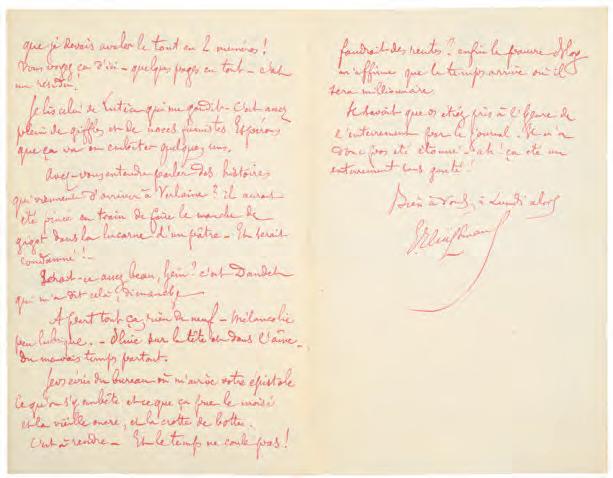 que je devais avaler le tout en 2 numéros!
Vous voyez ça d'ici - quelques pages en tout - c'est
un résidu!
Je lis celui de qui me gaudit - C'est assez
plein de giffles et de noces funestes Espérons
que ça va en embêter quelques uns.
Avez-vous entendu parler des histoires
qui viennent d'arriver à Verlaine? il aurait
été pincé en train de faire le manche de
gigot dans la lucarne d'un pâtre - Et serait
condamné!-
Serait-ce assez beau, hein? c'est Daudet
qui m'a dit celà, dimanche
A part tout ça, rien de neuf - Mélancolie
peu lubrique. - Pluie sur la tête et dans l'âme -
du mauvais temps partout.
Je vs écris du bureau où m'arrive votre épistole
Ce qu'on s'y embête et ce que ça pue le moisi
et la vieille encre, et la crotte de botte.
C'est à rendre - Et le temps ne coule pas!
faudrait des rentes? enfin le pauvre Bloy
m'affirme que le temps arrive où il
sera millionnaire.
Je savais que vs étiez pris à l'heure de
l'enterrement par le journal. Je n'ai
donc pas été étonné - ah! ça été un
enterrement sans gaité!
Bien à vous, à Lundi alors
GHuysmans